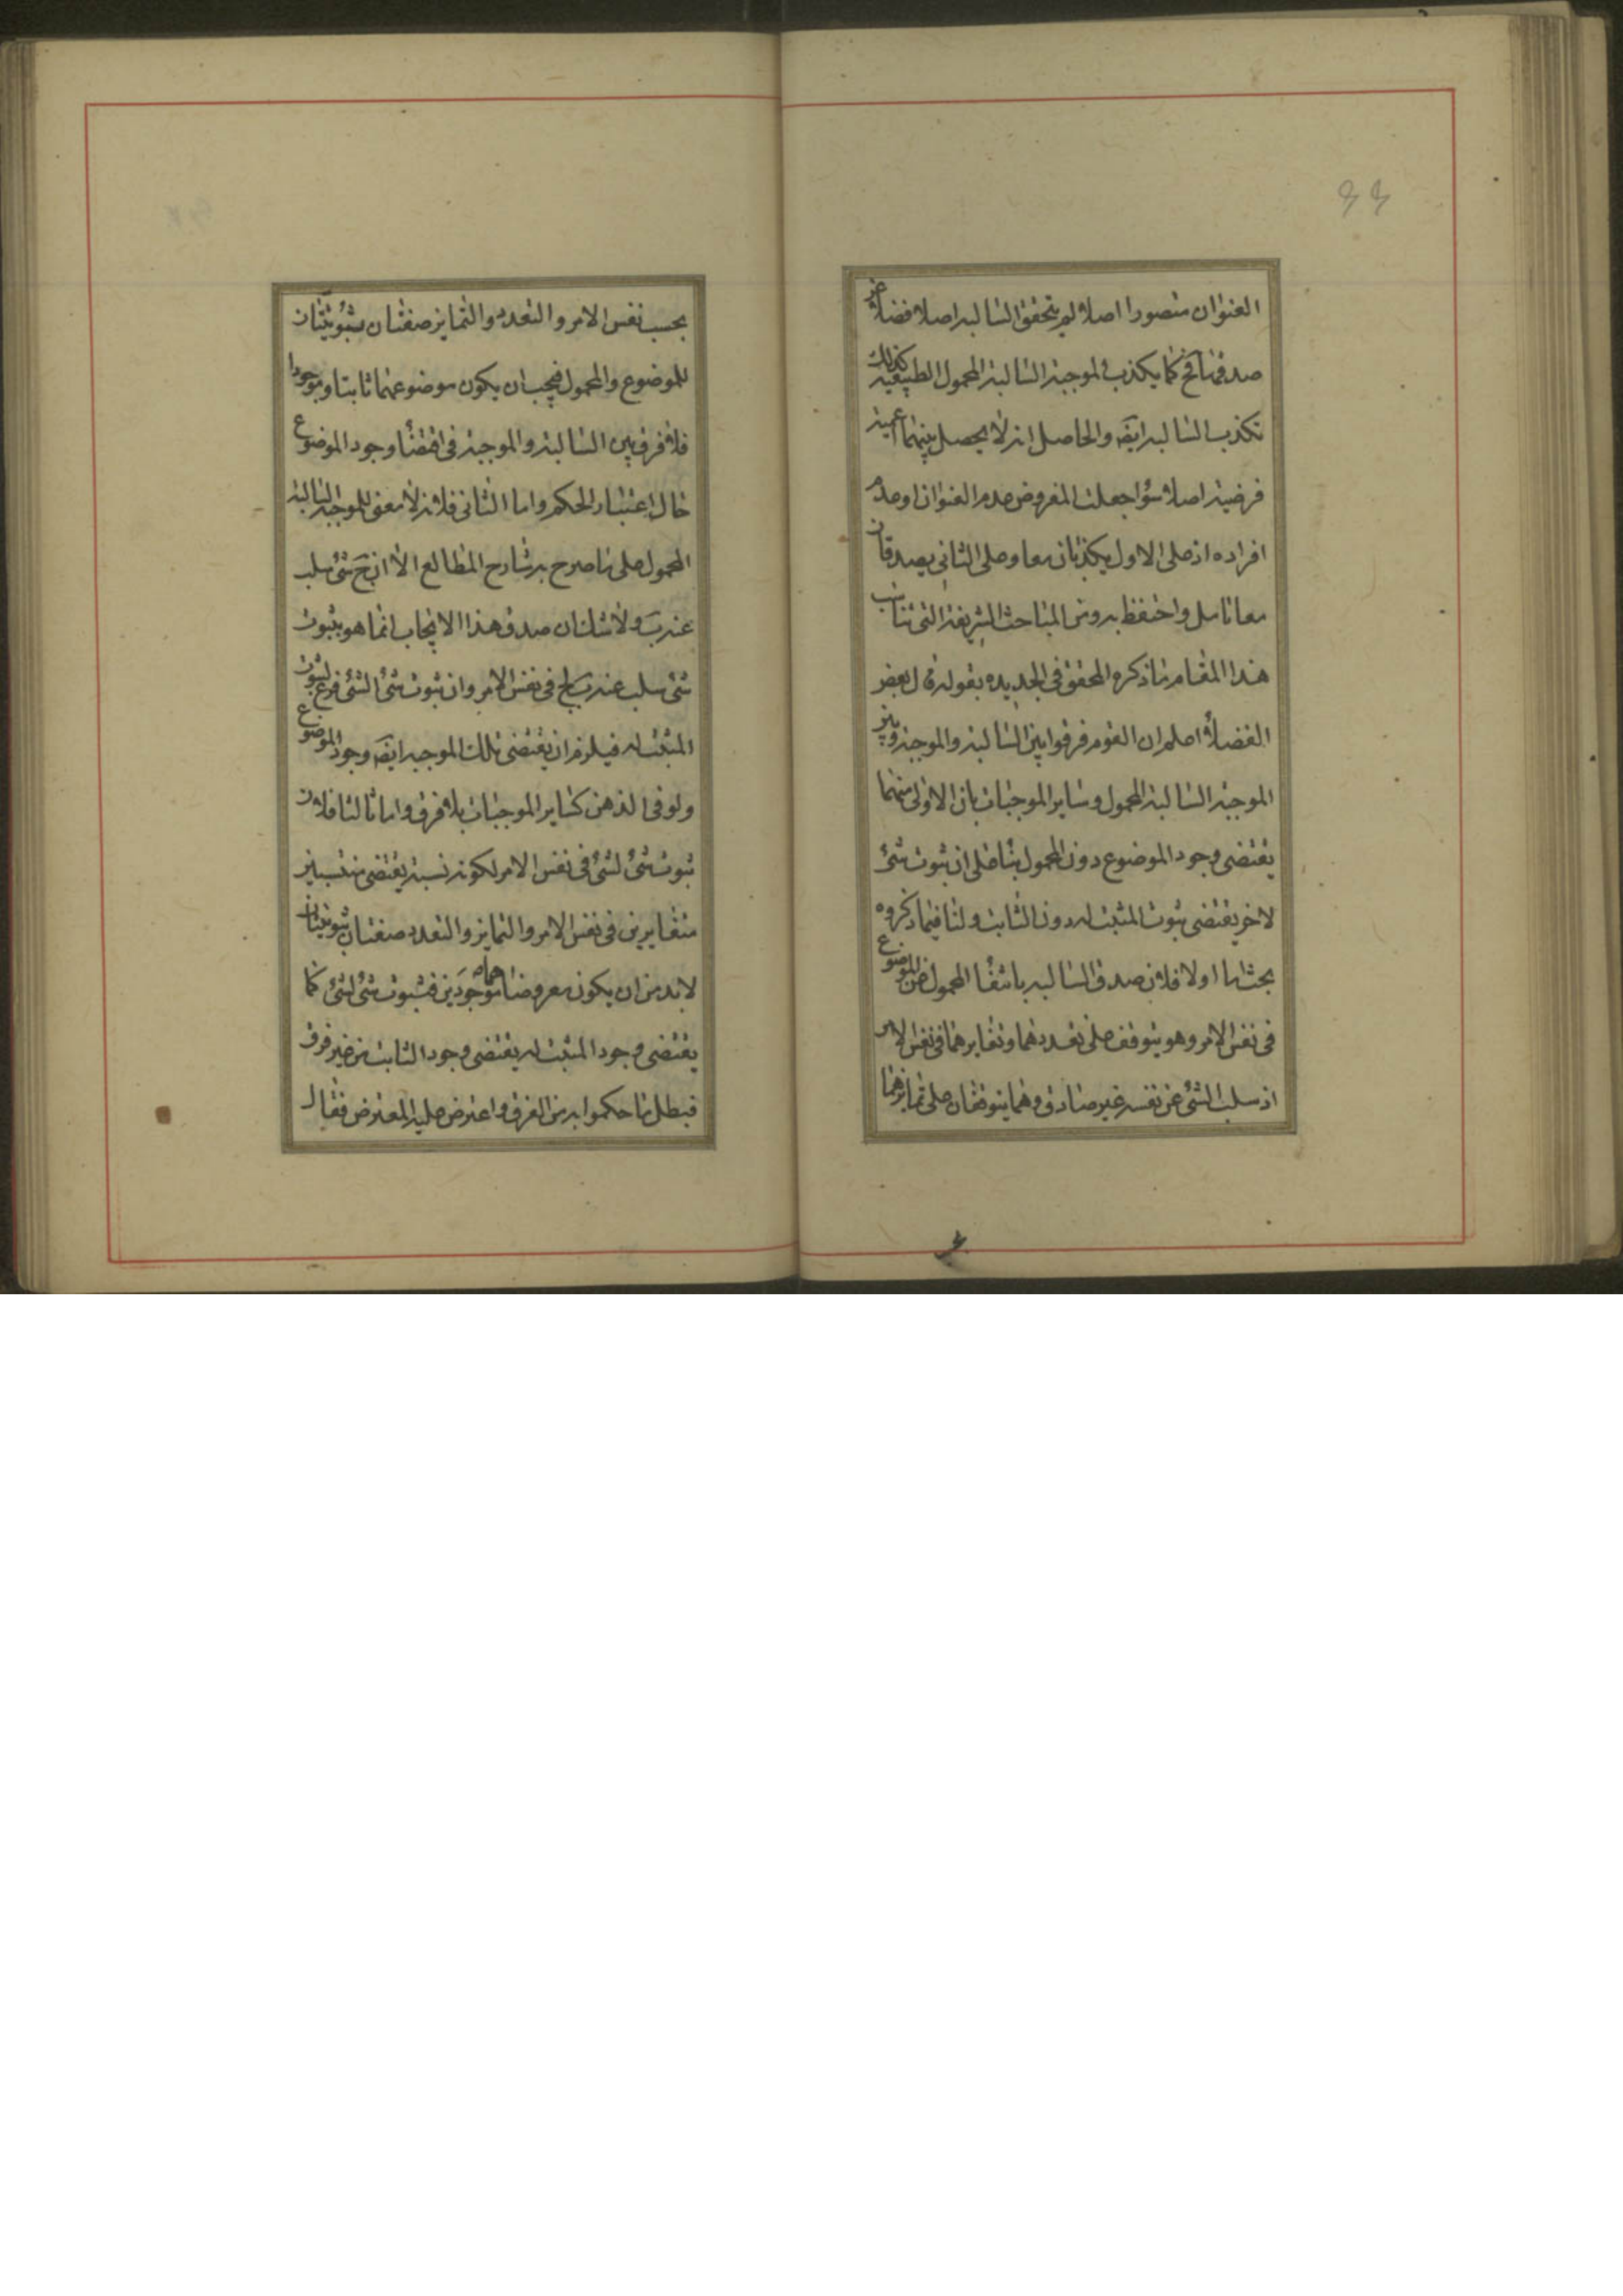 ٤٤
العنوان متصورا اصلا لم يتحقق السالبه اصلا فضلا عن
صدقها فح كما يكذب الموجبة السالبة المحمول الطبيعيه كذلك
تكذب السالبه ايضه والحاصل انه لا يحصل بينهما
فرضية اصلا سؤا جعلت المفروض عدم العنوان او عدم
افراده اذ على الاول يكذبان معا وعلى الثانى يصدقان
معا تامل واحتفظ به ومن المباحث الشريفة التى تناسب
هذا المقام ما ذكره المحقق فى الجديده بقوله قال بعض
الفضلأ اعلم ان القوم فرقوا بين السالبة والموجبة وبين
الموجبة السالبة المحمول وساير الموجبات بان الاولى منهما
يقتضى وجود الموضوع دون المحمول بنا على ان ثبوت شئ
لاخر يقتضى ثبوت المثبت له دون الثابت ولنا فيما ذكروه
بحث اما اولا فلان صدق السالبه بانتفأ المحمول عن الموضوع
فى نفس الامر وهو يتوقف على تعددهما وتغايرهما فى نفس الامر
اذ سلب الشئ عن نفسه غير صادق وهما يتوقفان على تمايزهما
بحسب نفس الامر والتعدد والتمايز صفتان ثبوتيتان
للموضوع والمحمول فيجب ان يكون موضوعهما ثابتا وموجودا
فلا فرق بين السالبة والموجبة فى اقتضأ وجود الموضوع
حال اعتبار الحكم واما الثانى فلانه لا معنى للموجبة السالبة
المحمول على ما صرح به شارح المطالع الا ان ج شئ سلب
عنه ب ولا شك ان صدق هذا الايجاب انما هو بثبوت
شئ سلب عنه ب لج فى نفس الامر وان ثبوت شئ الشئ فرع لثبوت
المثبت له فيلزم ان يقتضى تلك الموجبه ايضه وجود الموضوع
ولو فى الذهن كساير الموجبات بلا فرق واما ثالثا فلان
ثبوت شئ لشئ فى نفس الامر لكونه نسبة يقتضى منتسبين
متغايرين فى نفس الامر والتمايز والتعدد صفتان ثبوتيتان
لابد من ان يكون معروضاهما موجودين فثبوت شئ لشئ كما
يقتضى وجود المثبت له يقتضى وجود الثابت من غير فرق
فبطل ما حكموا به من الفرق واعترض عليه المعترض فقال